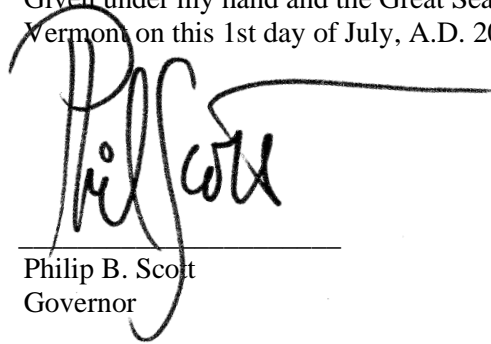 Given under my hand and the Great Sea
Vermont on this 1st day of July, A.D. 20
Phil Scott
Philip B. Scott
Governor